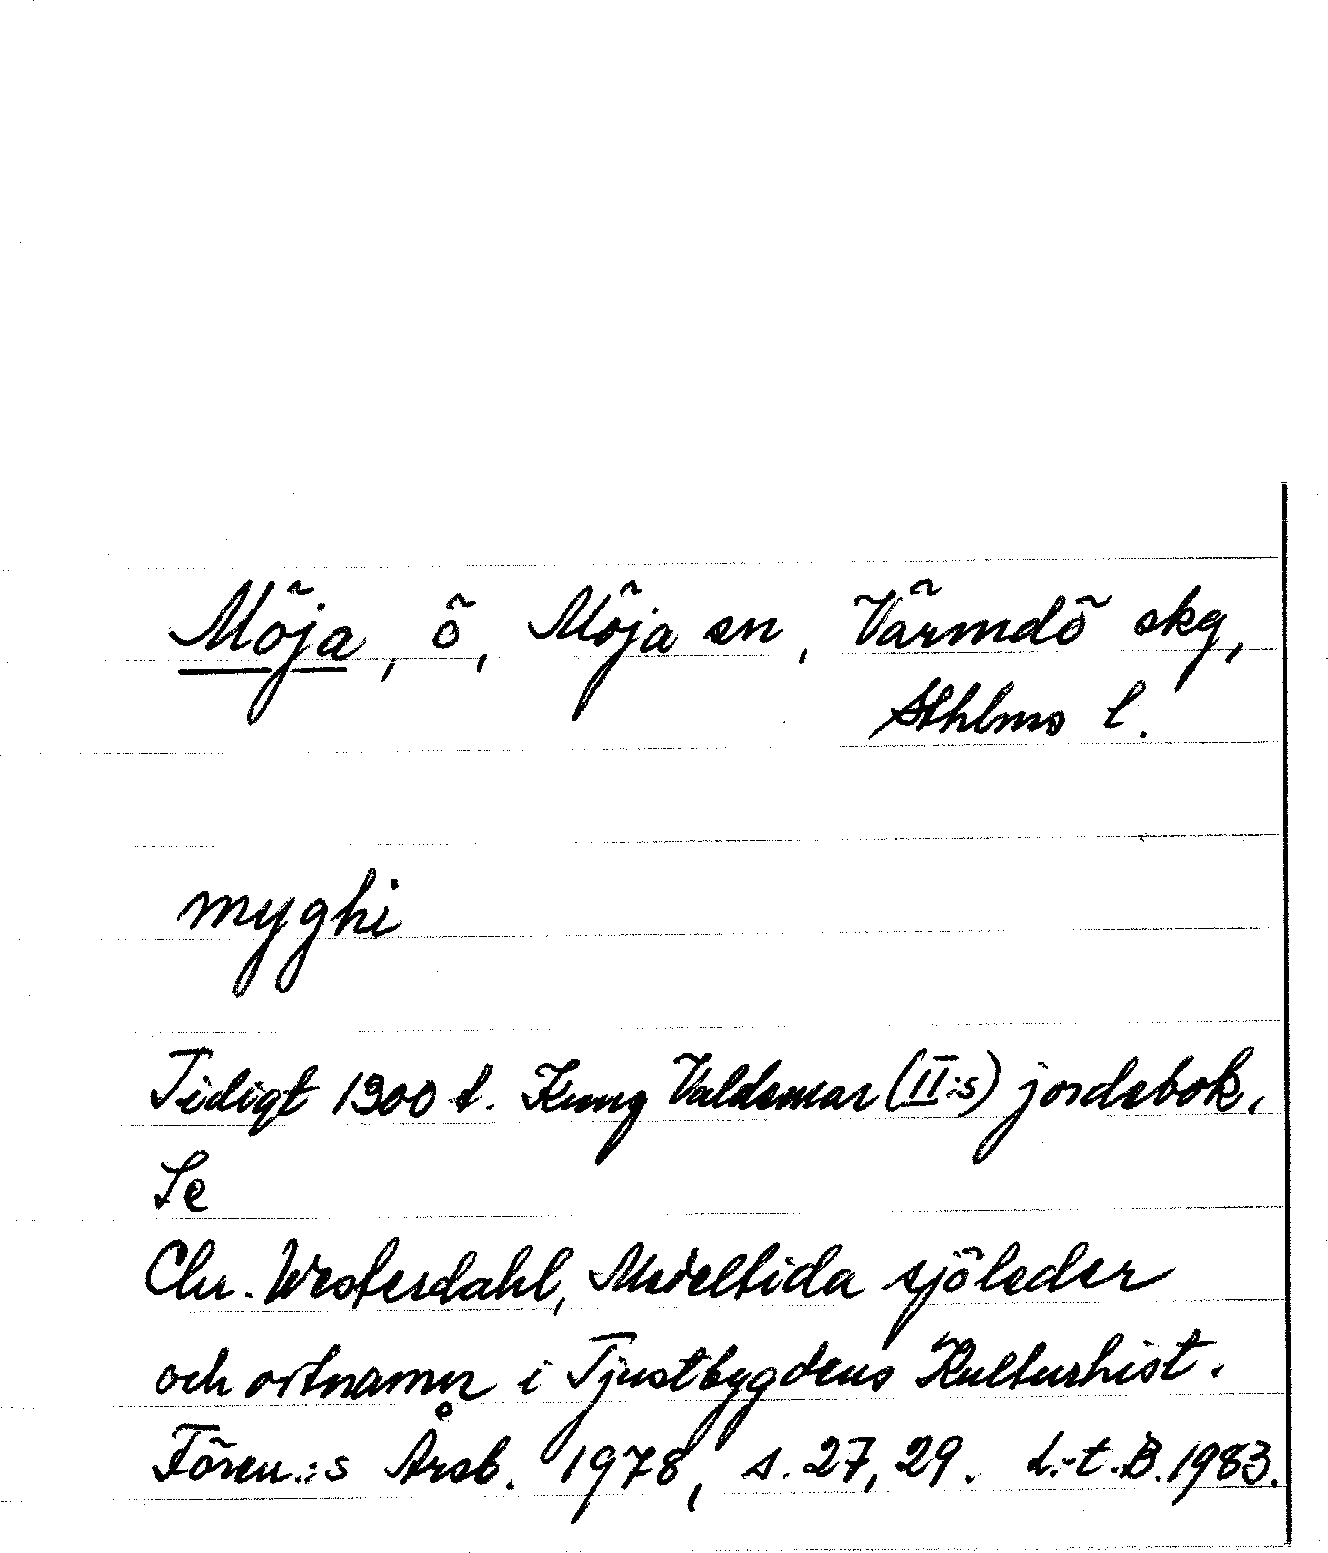 Möja, ö, Möja sn, Värmdö skg,
Sthlms l.
myghi
Tidigt 1300 t. Kung Valdemar (II:s) jordebok.
Se
Chr. Westerdahl, Medeltida sjöleder
och ortnamn i Tjustbygdens Kulturhist.
Fören.:s Årsb. 1978, s. 27, 29. L.-t. B. 1983.